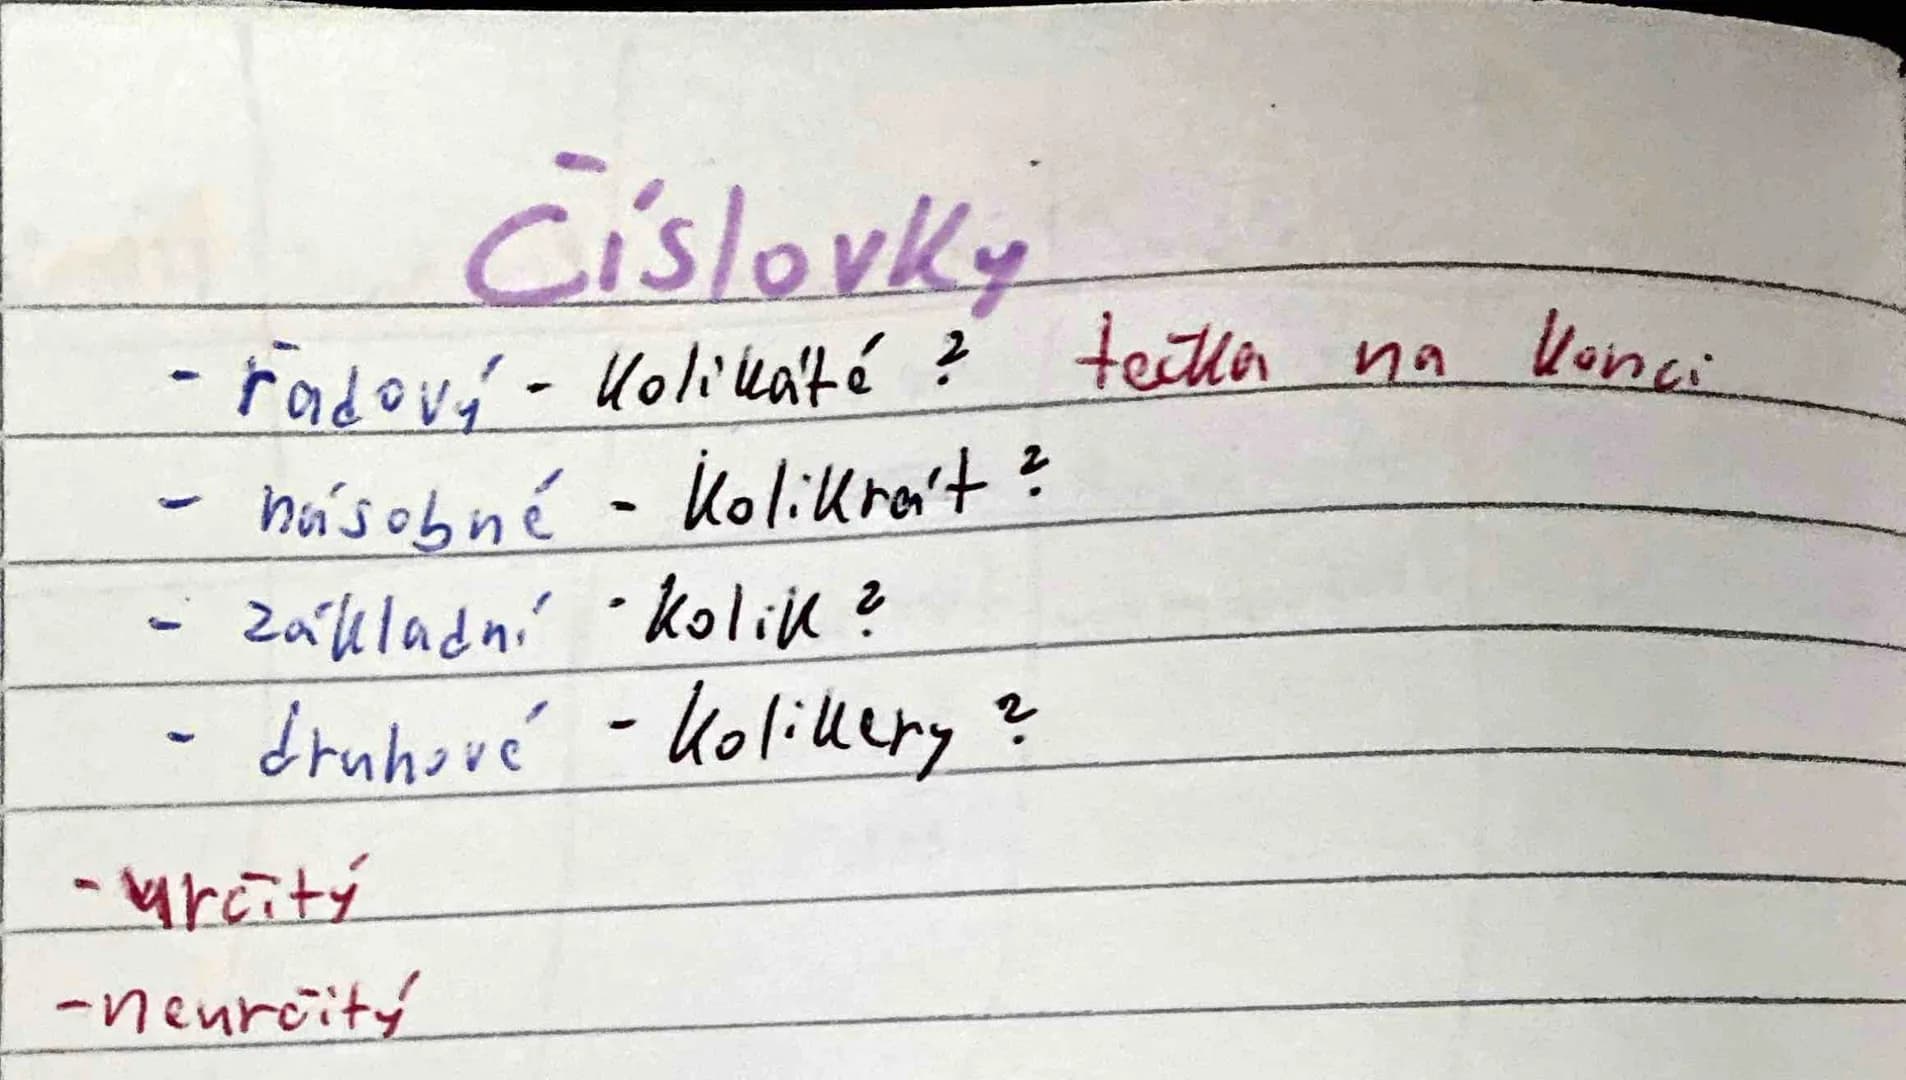 Číslovky
- řadový - Kolikáté ? tečka na konci
- násobné - Kolikrát ?
- základní - Kolik ?
- druhové - Kolikery ?
- určitý
- neurčitý